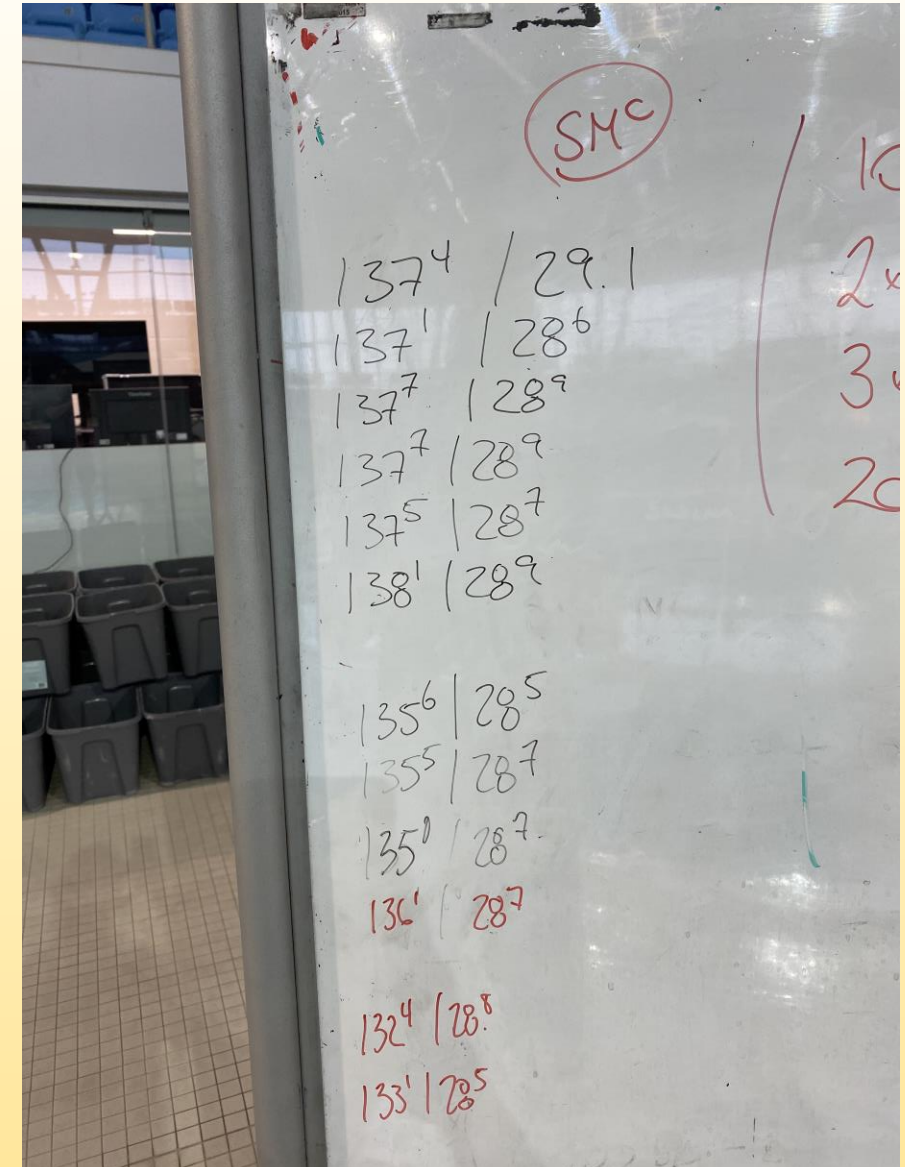 SMC
137⁴ / 29.1
137¹ / 28⁶
137⁷ / 28⁹
137⁷ / 28⁹
137⁵ / 28⁷
138¹ / 28⁹
135⁶ / 28⁵
135⁵ / 28⁷
135⁰ / 28⁷
136¹ / 28⁷
132⁴ / 28.⁸
133¹ / 28⁵
10
2x
3x
20